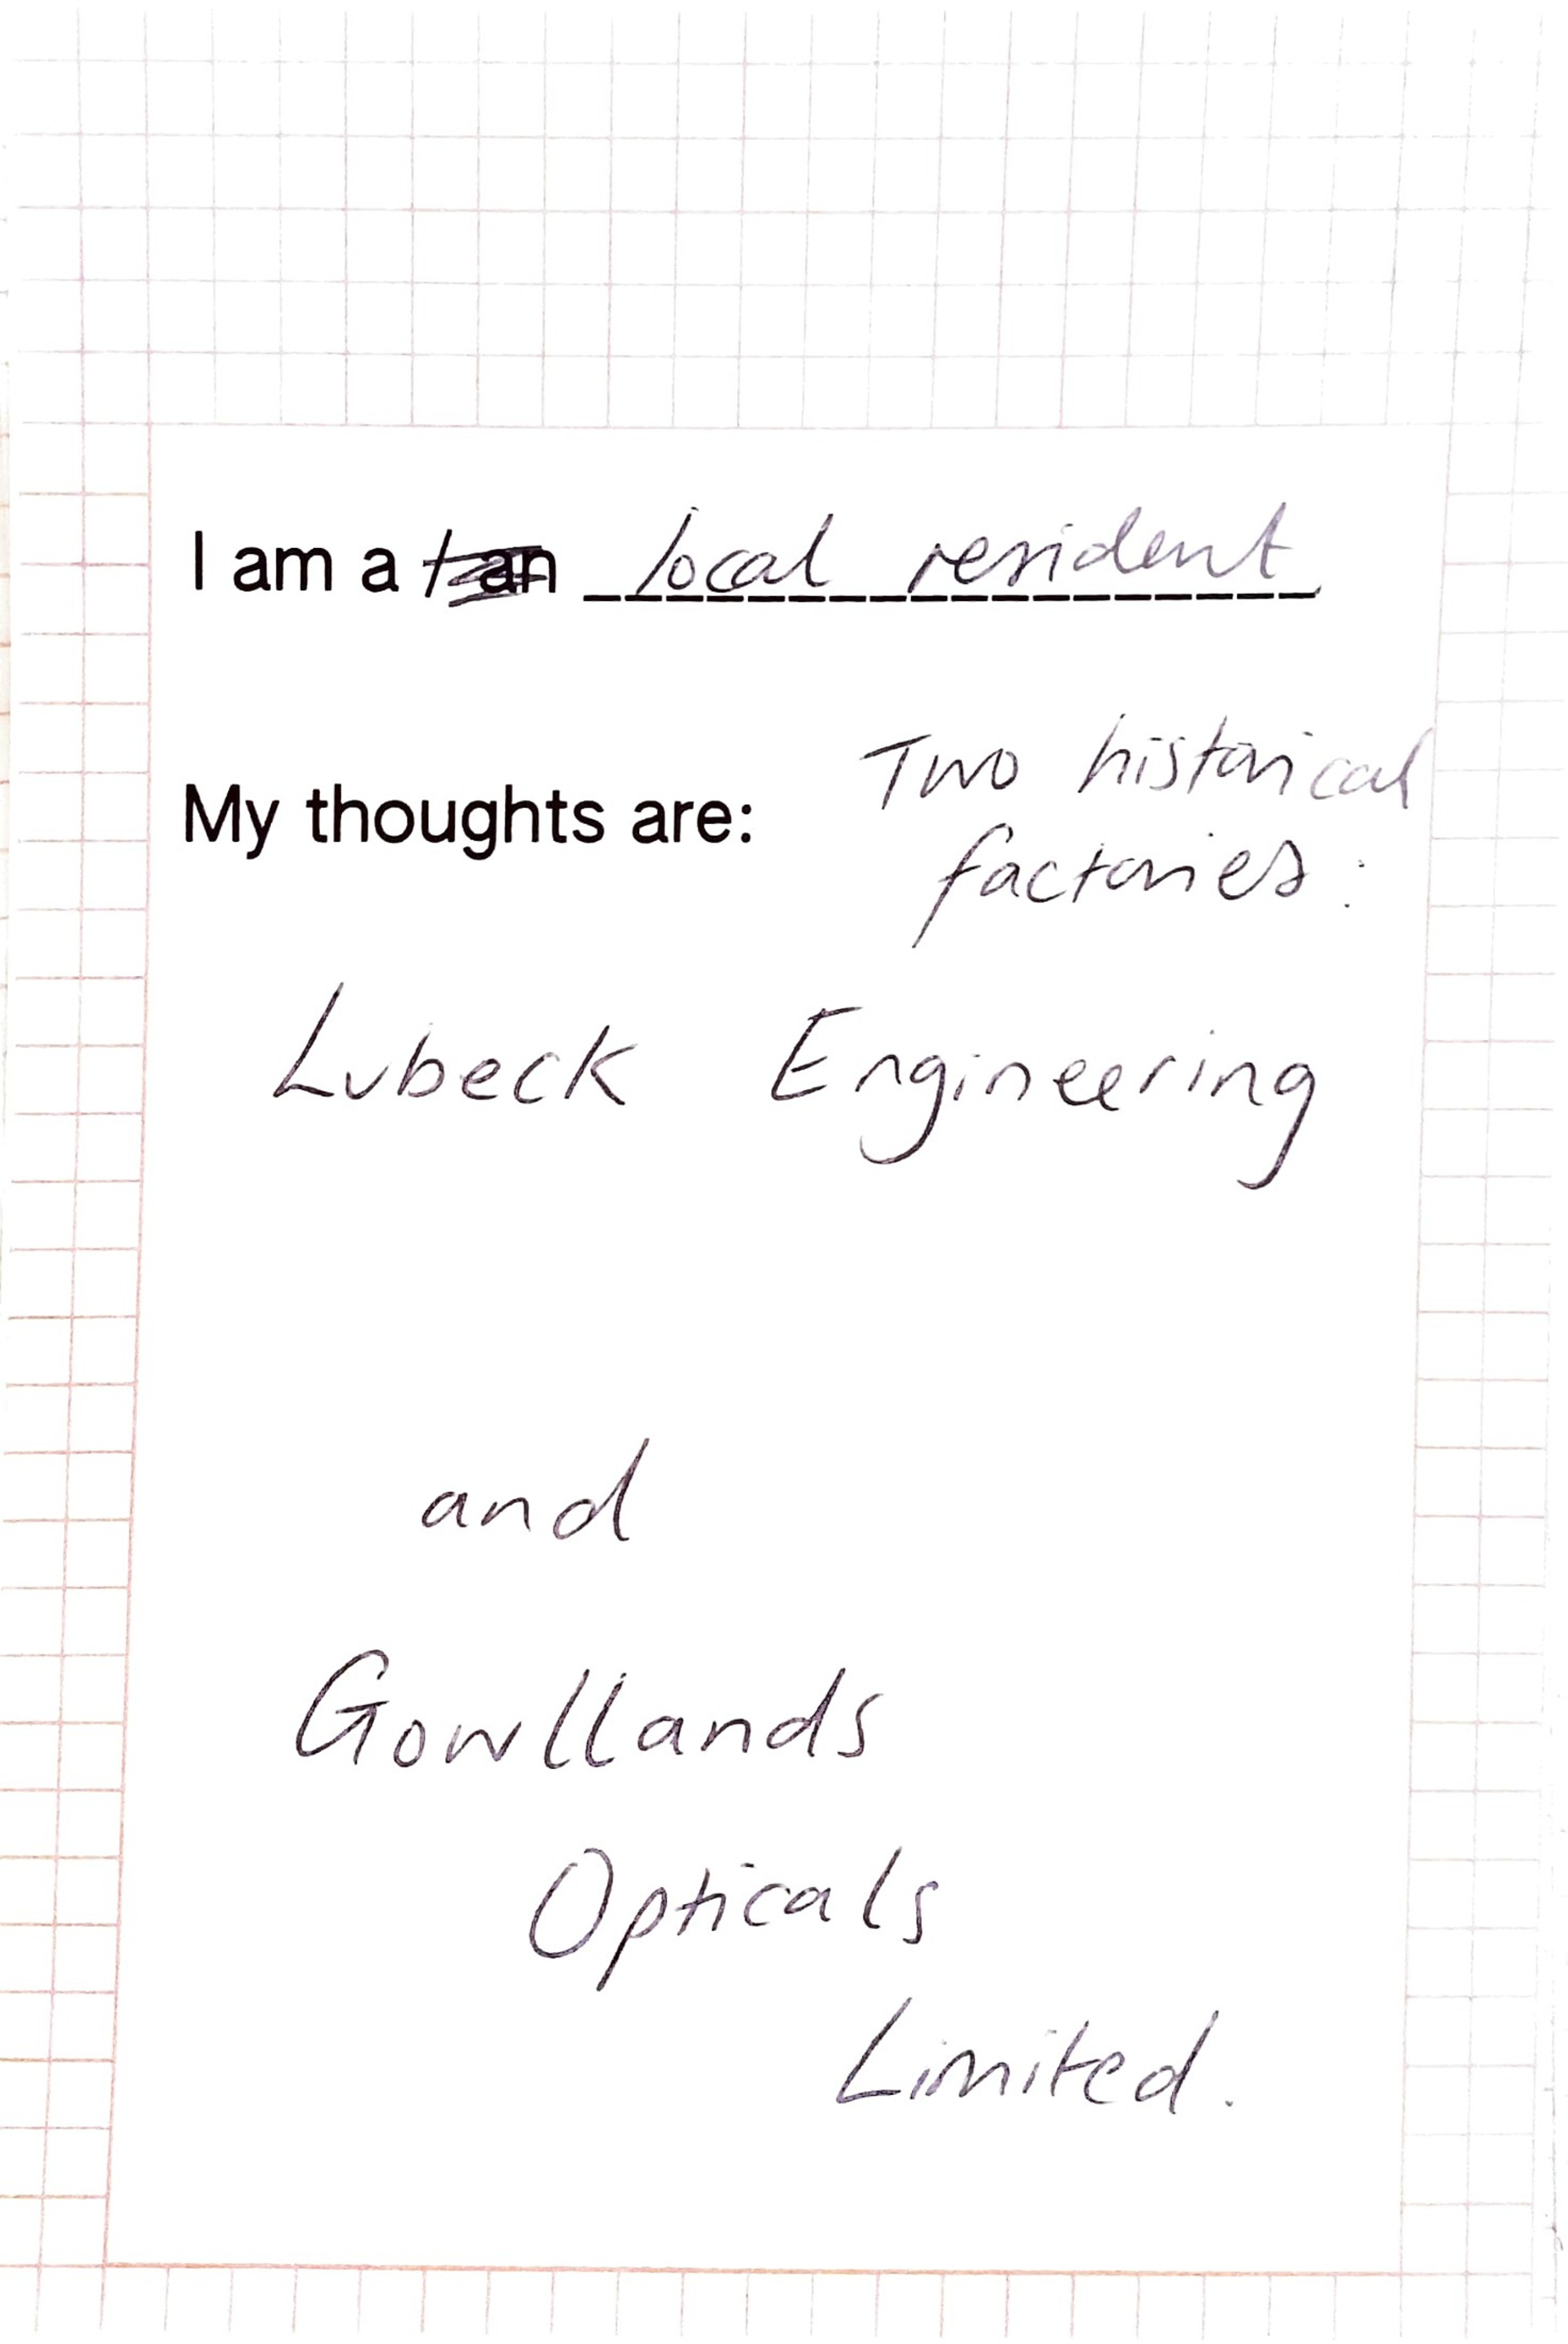 I am a / an local resident
My thoughts are: Two historical
factories:
Lubeck Engineering
and
Gowllands
Opticals
Limited.